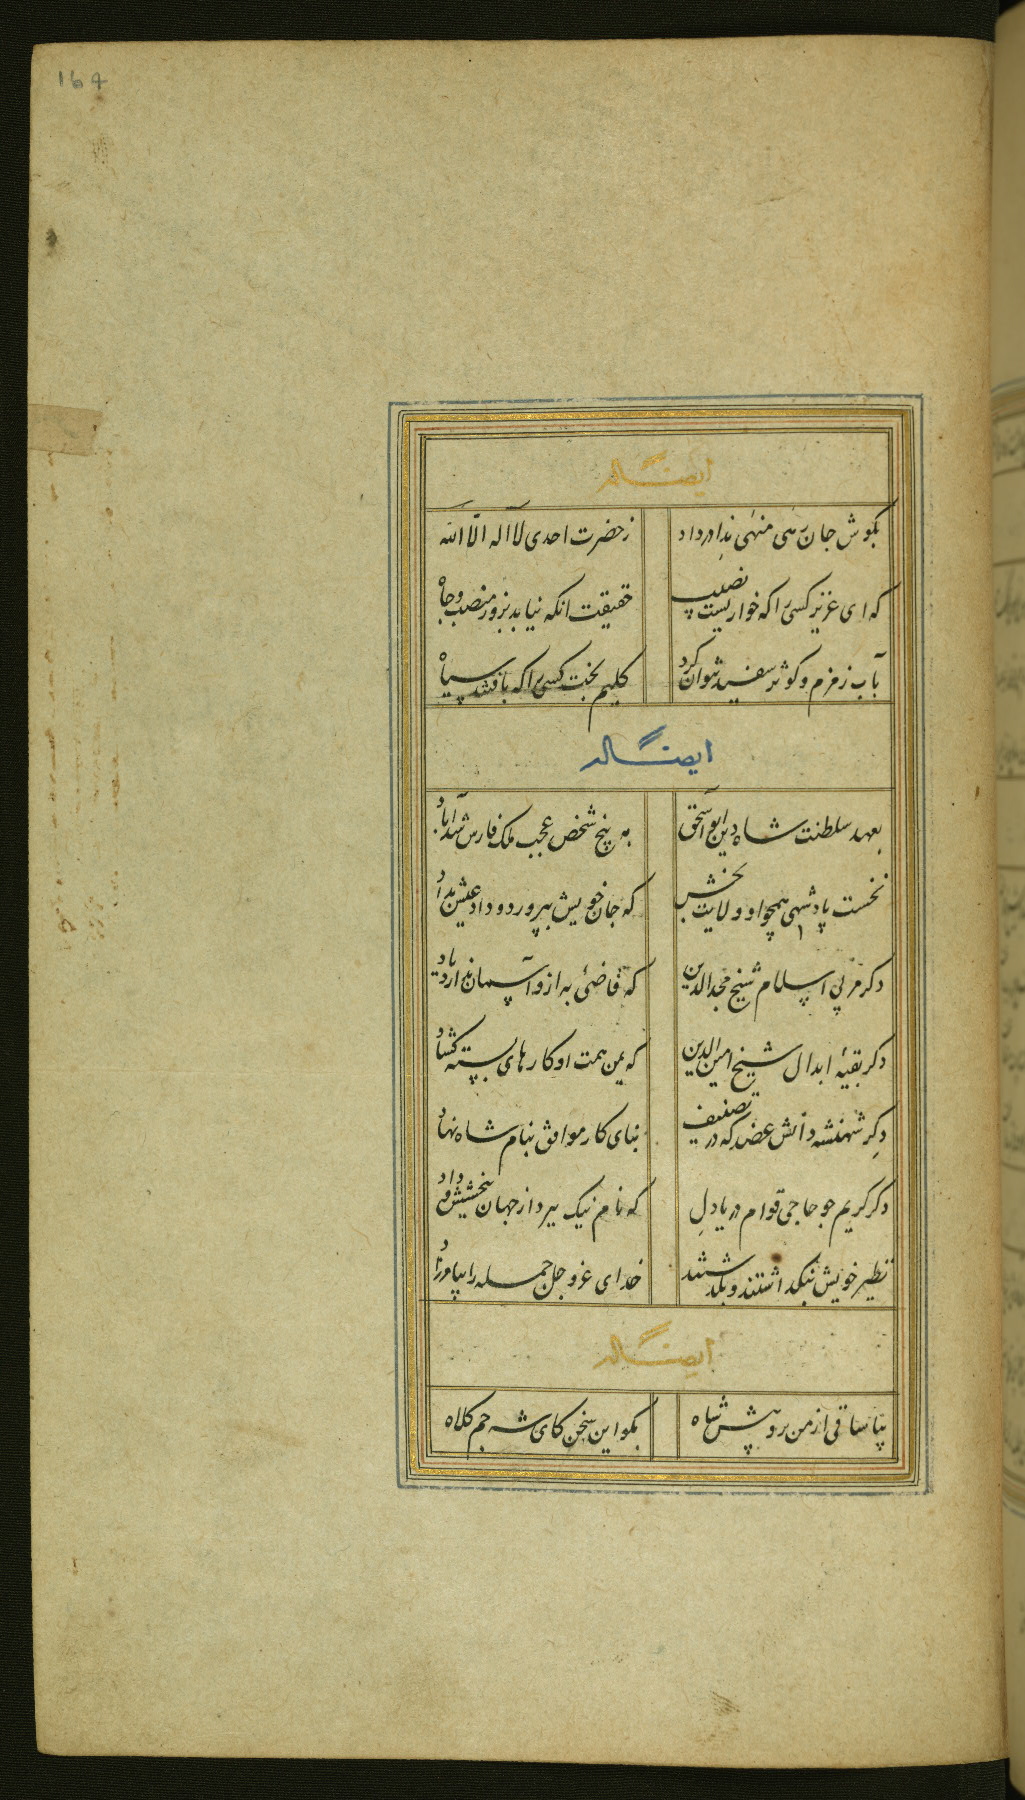 169
ایضاً له
بکوش جان رهی منهی ندا در داد
ز حضرت احدی لا اله الا الله
که ای عزیز کسی را که خواریست نصیب
حقیقت آنکه نیابد بزور منصب و جاه
بآب زمزم و کوثر سفید نتوان کرد
کلیم بخت کسی را که بافتند سیاه
ایضاً له
بعهد سلطنت شاه دین ابو اسحق
به پنج شخص عجب ملک فارس شد آباد
نخست پادشهی همچو او ولایت بخش
که جان خویش بپرورد و داد عیش بداد
دکر مربی اسلام شیخ مجد الدین
که قاضئ به ازو آسمان ندارد یاد
دکر بقیه ابدال شیخ امین الدین
که یمن همت او کارهای بسته کشاد
دکر شهنشه دانش عضد که در تصنیف
بنای کار موافق بنام شاه نهاد
دکر کریم جو حاجی قوام دریا دل
که نام نیک ببرد از جهان ببخشش و داد
نظیر خویش بنکذاشتند و بکذشتند
خدای عز و جل جمله را بیامرزاد
ایضاً له
بیا ساقی از من برو پیش شاه
بکو این سخن کای شه جم کلاه